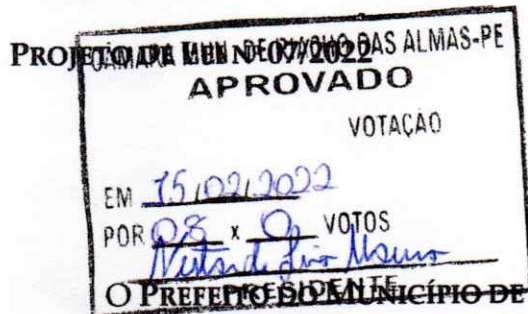 PROJETO DE LEI Nº 07/2022
CÂMARA MUN. DE RIACHO DAS ALMAS-PE
APROVADO
VOTAÇÃO
EM 15/02/2022
POR 08 x 0 VOTOS
PRESIDENTE
O PREFEITO DO MUNICÍPIO DE